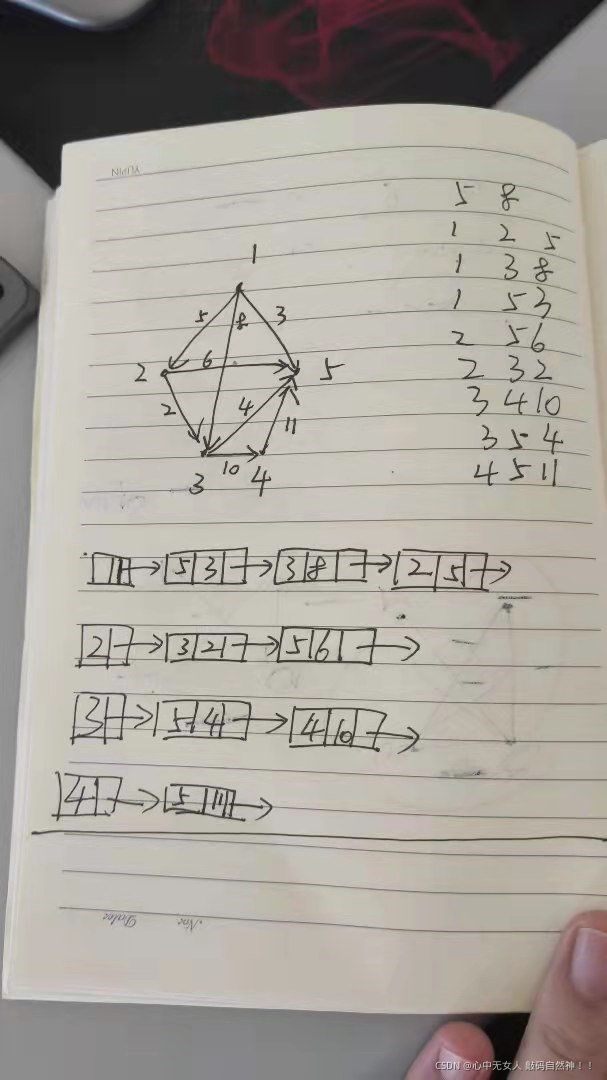 YLIPIN
5 8
1 2 5
1 3 8
1 5 3
2 5 6
2 3 2
3 4 10
3 5 4
4 5 11
1
5 8 3
2 6 5
2 4 11
10
3 4
1 5 3 3 8 2 5
2 3 2 5 6
3 5 4 4 10
4 5 11
No: Date:
CSDN @心中无女人 敲码自然神！！